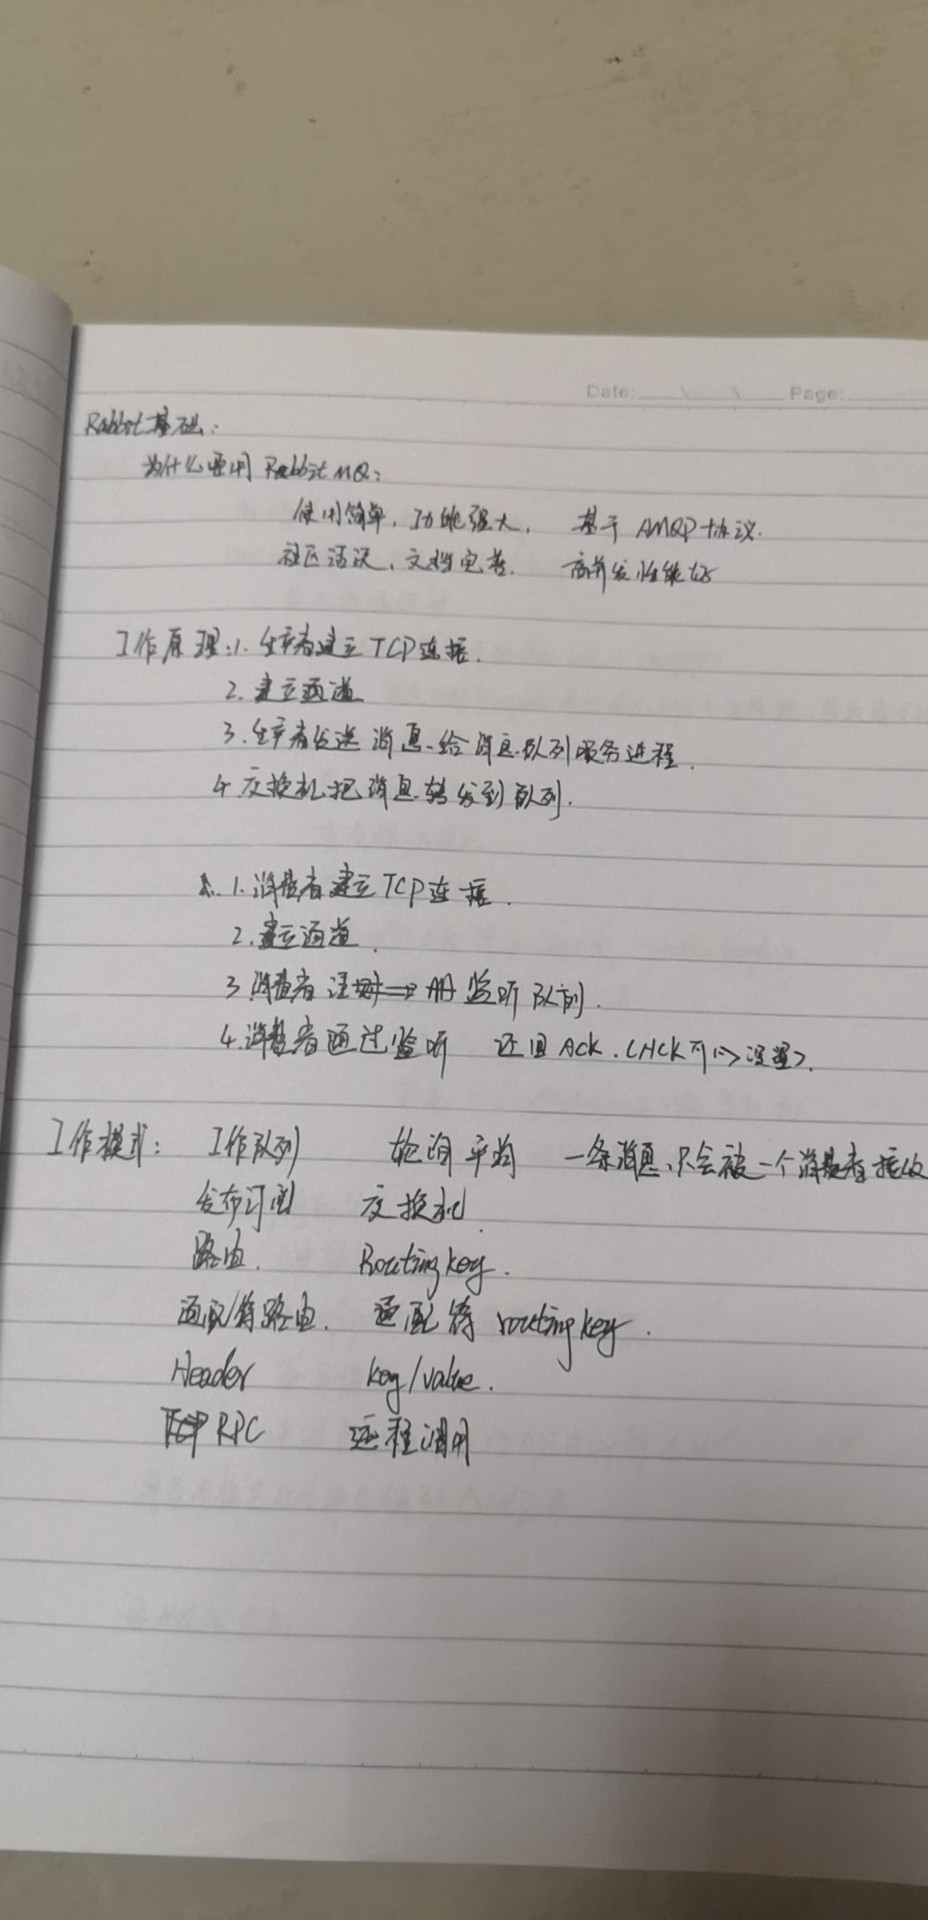 Date: Page:
Rabbit基础:
为什么要用 RabbitMQ:
使用简单, 功能强大, 基于 AMQP协议.
社区活跃, 文档完善. 高并发性能好
工作原理:1. 生产者建立TCP连接.
2. 建立通道
3. 生产者发送消息给消息队列服务进程.
4. 交换机把消息转发到队列.
1. 消费者建立TCP连接.
2. 建立通道.
3 消费者 注册 监听队列.
4. 消费者通过监听 返回 ACK.
工作模式: 工作队列 轮询平均 一条消息,只会被一个消费者接收
发布订阅 交换机
路由. Routing key.
通配符路由. 通配符 routing key.
Header key/value.
RPC 远程调用